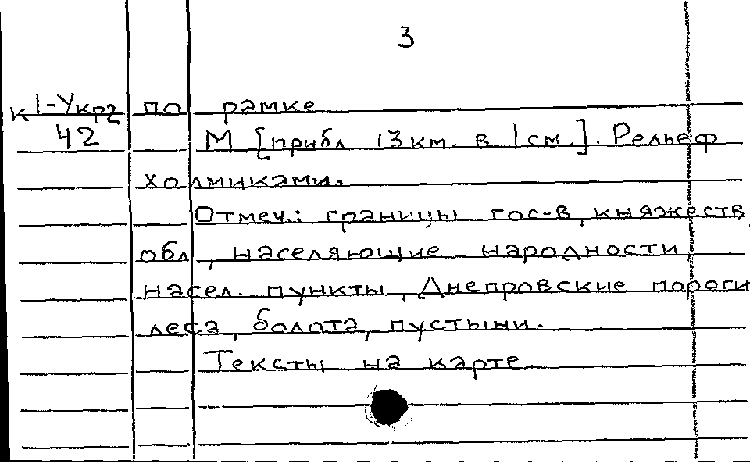 3
К 1-Укр2 по рамке
42 М [прибл 13 км. в 1 см.]. Рельеф
холмиками.
Отмеч.: границы гос-в, княжеств,
обл, населяющие народности
насел. пункты, Днепровские пороги
леса, болота, пустыни.
Тексты на карте